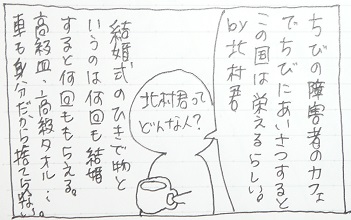 ちびの障害者のカフェ
でちびにあいさつすると
この国は栄えるらしい。
by 北村吾
北村君って
どんな人?
結婚式のひきで物と
いうのは何回も結婚
すると何回ももらえる。
高級皿、高級タオル…
車も身分だから捨てられない